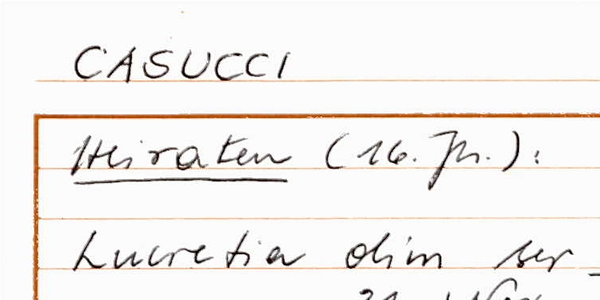 CASUCCI
Heiraten (16. Jh.):
Lucretia olim ser